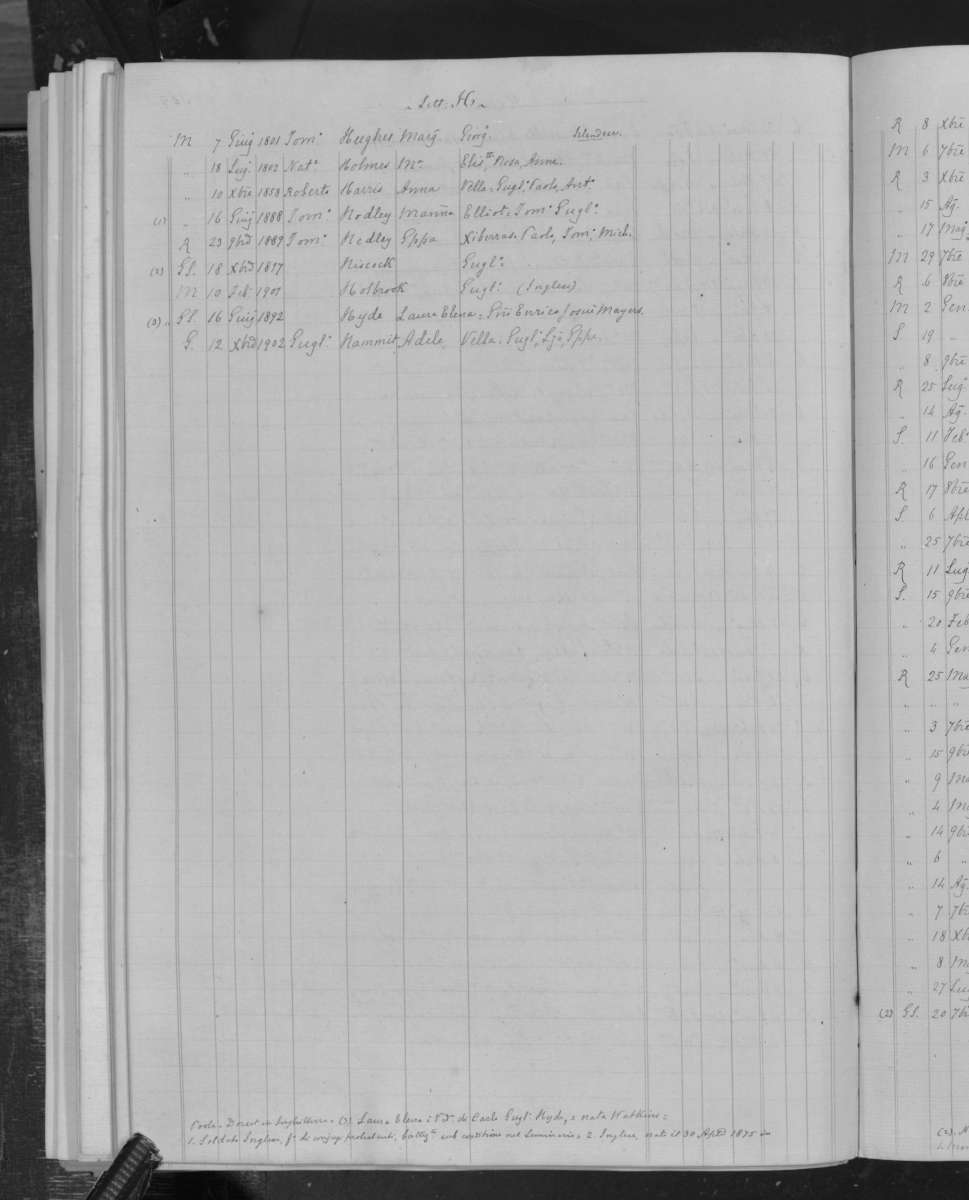 Lett. H.
M 7 Giug 1801 Tom: Hughes Mary Ging.
" 18 Lug. 1802 Nat. Holmes Mr. Elis. Rosa, Anne.
" 10 Xbre 1858 Roberto Harris Anna Vella. Gugl. Paolo, Ant.
(1) " 16 Giug 1888 Tom. Hodley Marina Elliot. Tom. Gugl.
R 23 9bre 1889 Tom. Hedley Gppa Xiberras. Paolo, Tom. Mich.
(2) GS. 18 Xbre 1897 Hiscock Gugl.
M 10 Feb. 1901 Holbrook Gugl. (Inglese)
(3) " Gl 16 Giug 1892 Hyde Laura Elena = Enrico Josué Mayers.
G. 12 Xbre 1902 Gugl. Hammit, Adele, Vella. Gugl.
(3) Laura Elena: di Carlo Gugl. Hyde, e nata Watkins =
1. Soldato Inglese, sub conditione nel Seminario = 2. Inglese, nato il 30 1875
R 8 Xbre
M 6 7bre
R 3 Xbre
" 15 Ag.
" 17 Mag
M 29 7bre
R 6 8bre
M 2 Gen
S 19 "
" 8 9bre
R 25 Lug
" 14 Ag.
S. 11 Feb.
" 16 Gen
R 17 8bre
S. 6 Apl
" 25 7bre
R 11 Lug
S. 15 9bre
" 20 Feb
" 4 Gen
R 25 Ma
" " "
" 3 7bre
" 15 9bre
" 9
" 4
" 14 9br
" 6 "
" 14 Ag
" 7 7br
" 18 Xb
" 8
" 27 Lug
(2) GS. 20 7br